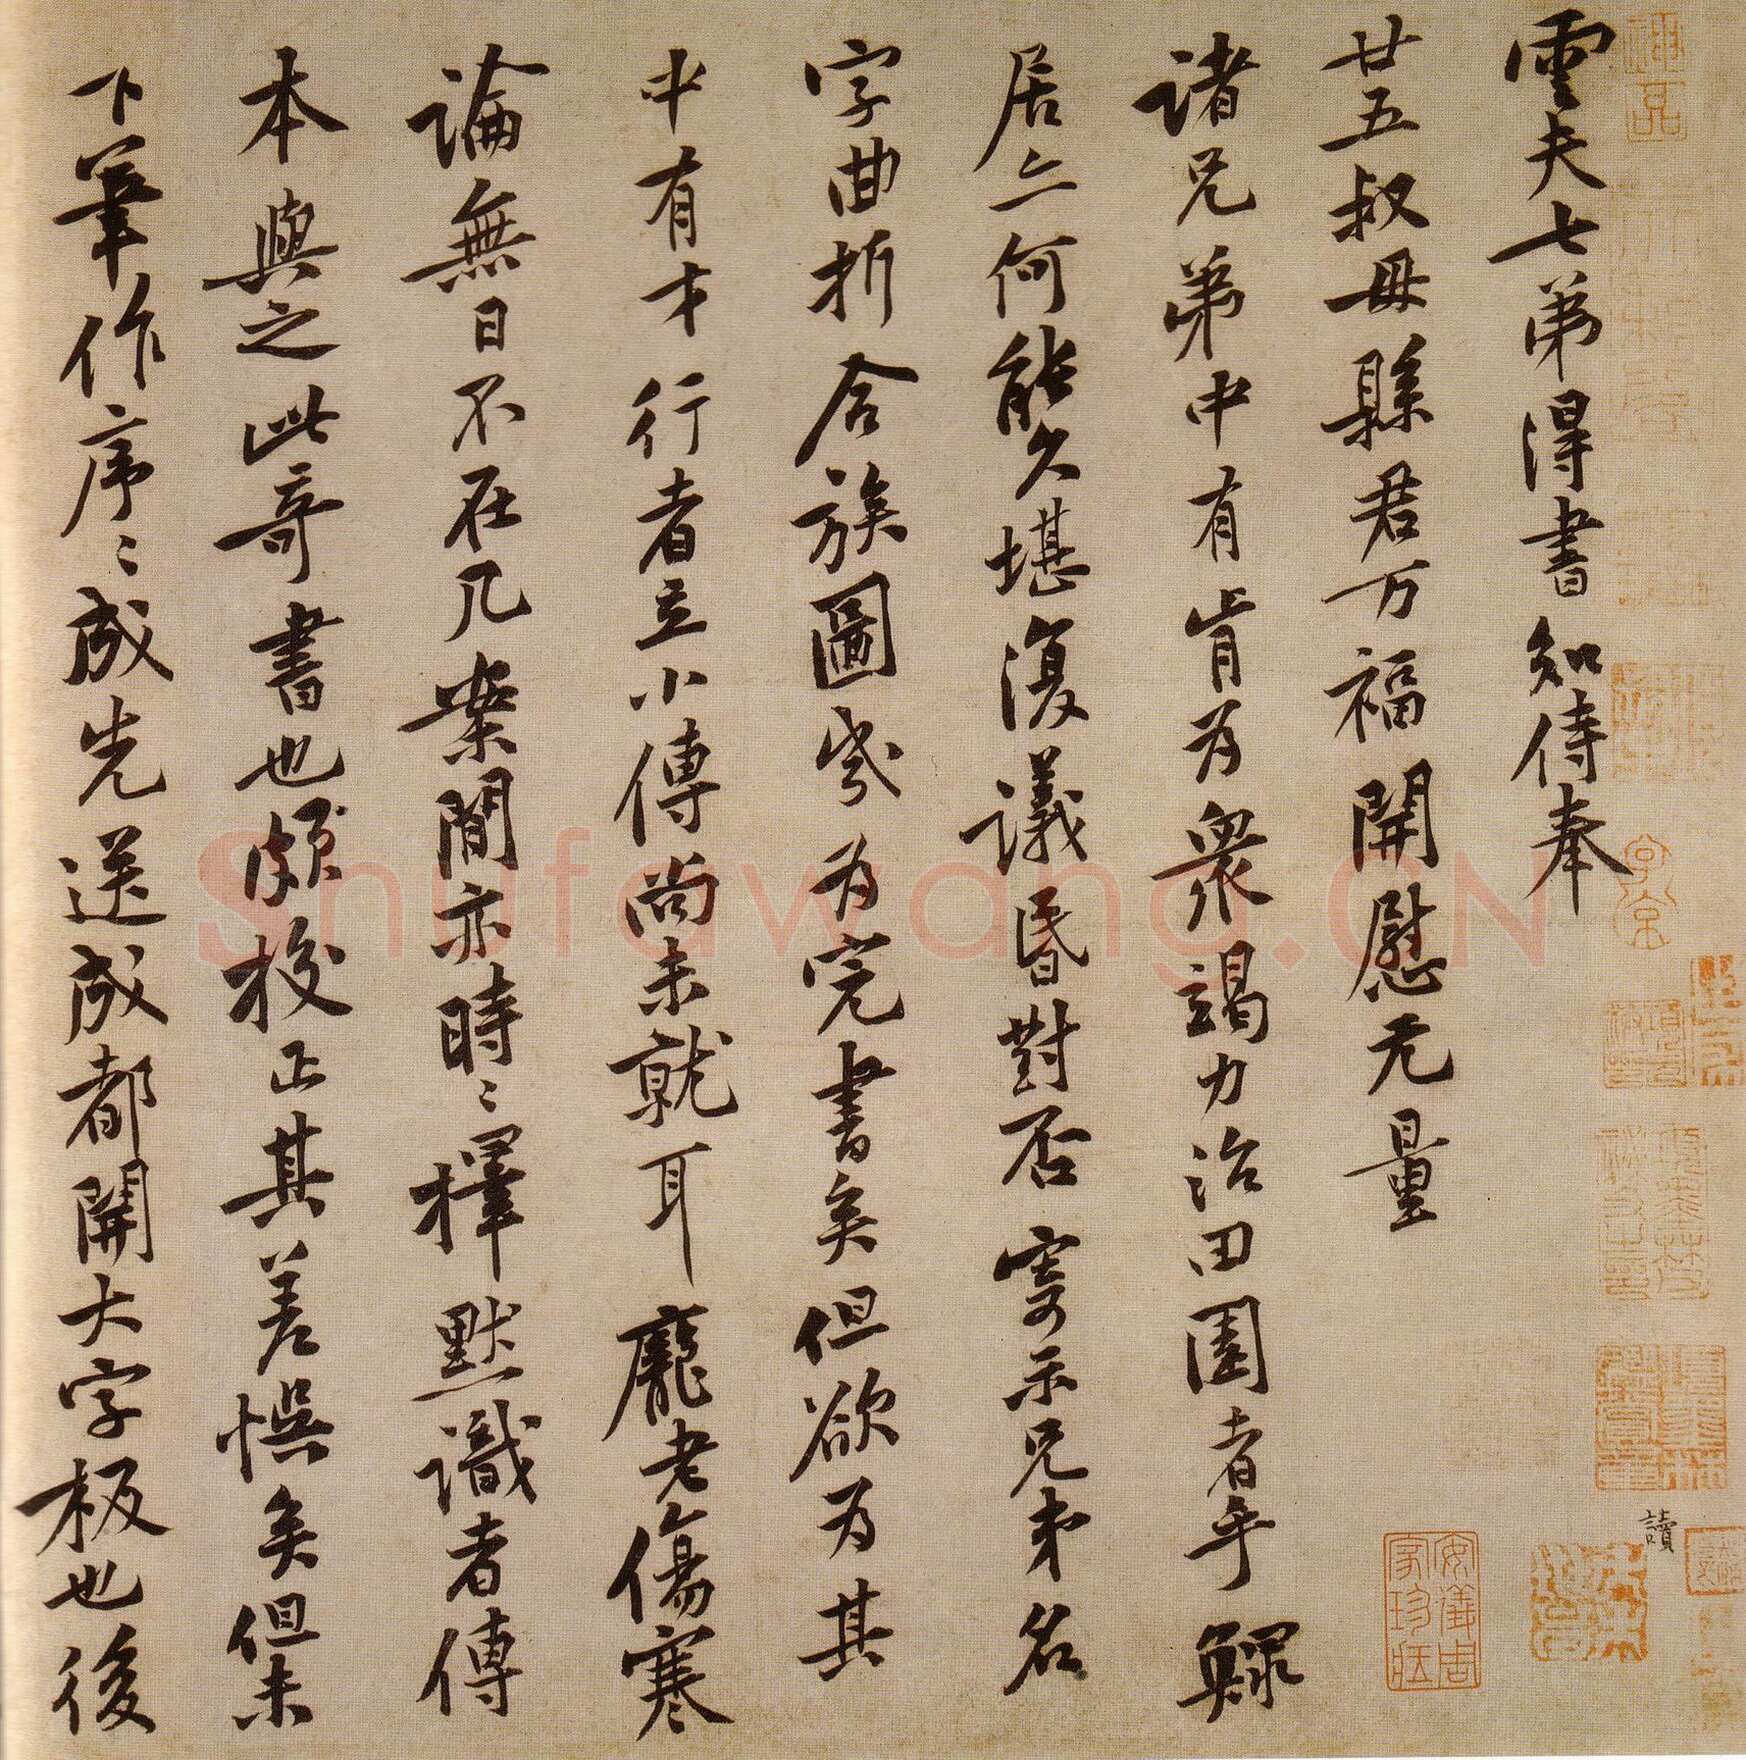 雲夫七弟得書知侍奉
廿五叔母縣君万福開慰无量
諸兄弟中有肯为衆竭力治田園者乎鰥
居亦何能久堪復議昏對否寄示兄弟名
字曲折合族圖幾为完書矣但欲为其
中有才行者立小傳尚未就耳龐老傷寒
論無日不在几案間亦時〻擇默識者傳
本與之此奇書也頗校正其差悞矣但未
下筆作序〻成先送成都開大字板也後
讀
Shufawang.CN
安儀周家珍藏